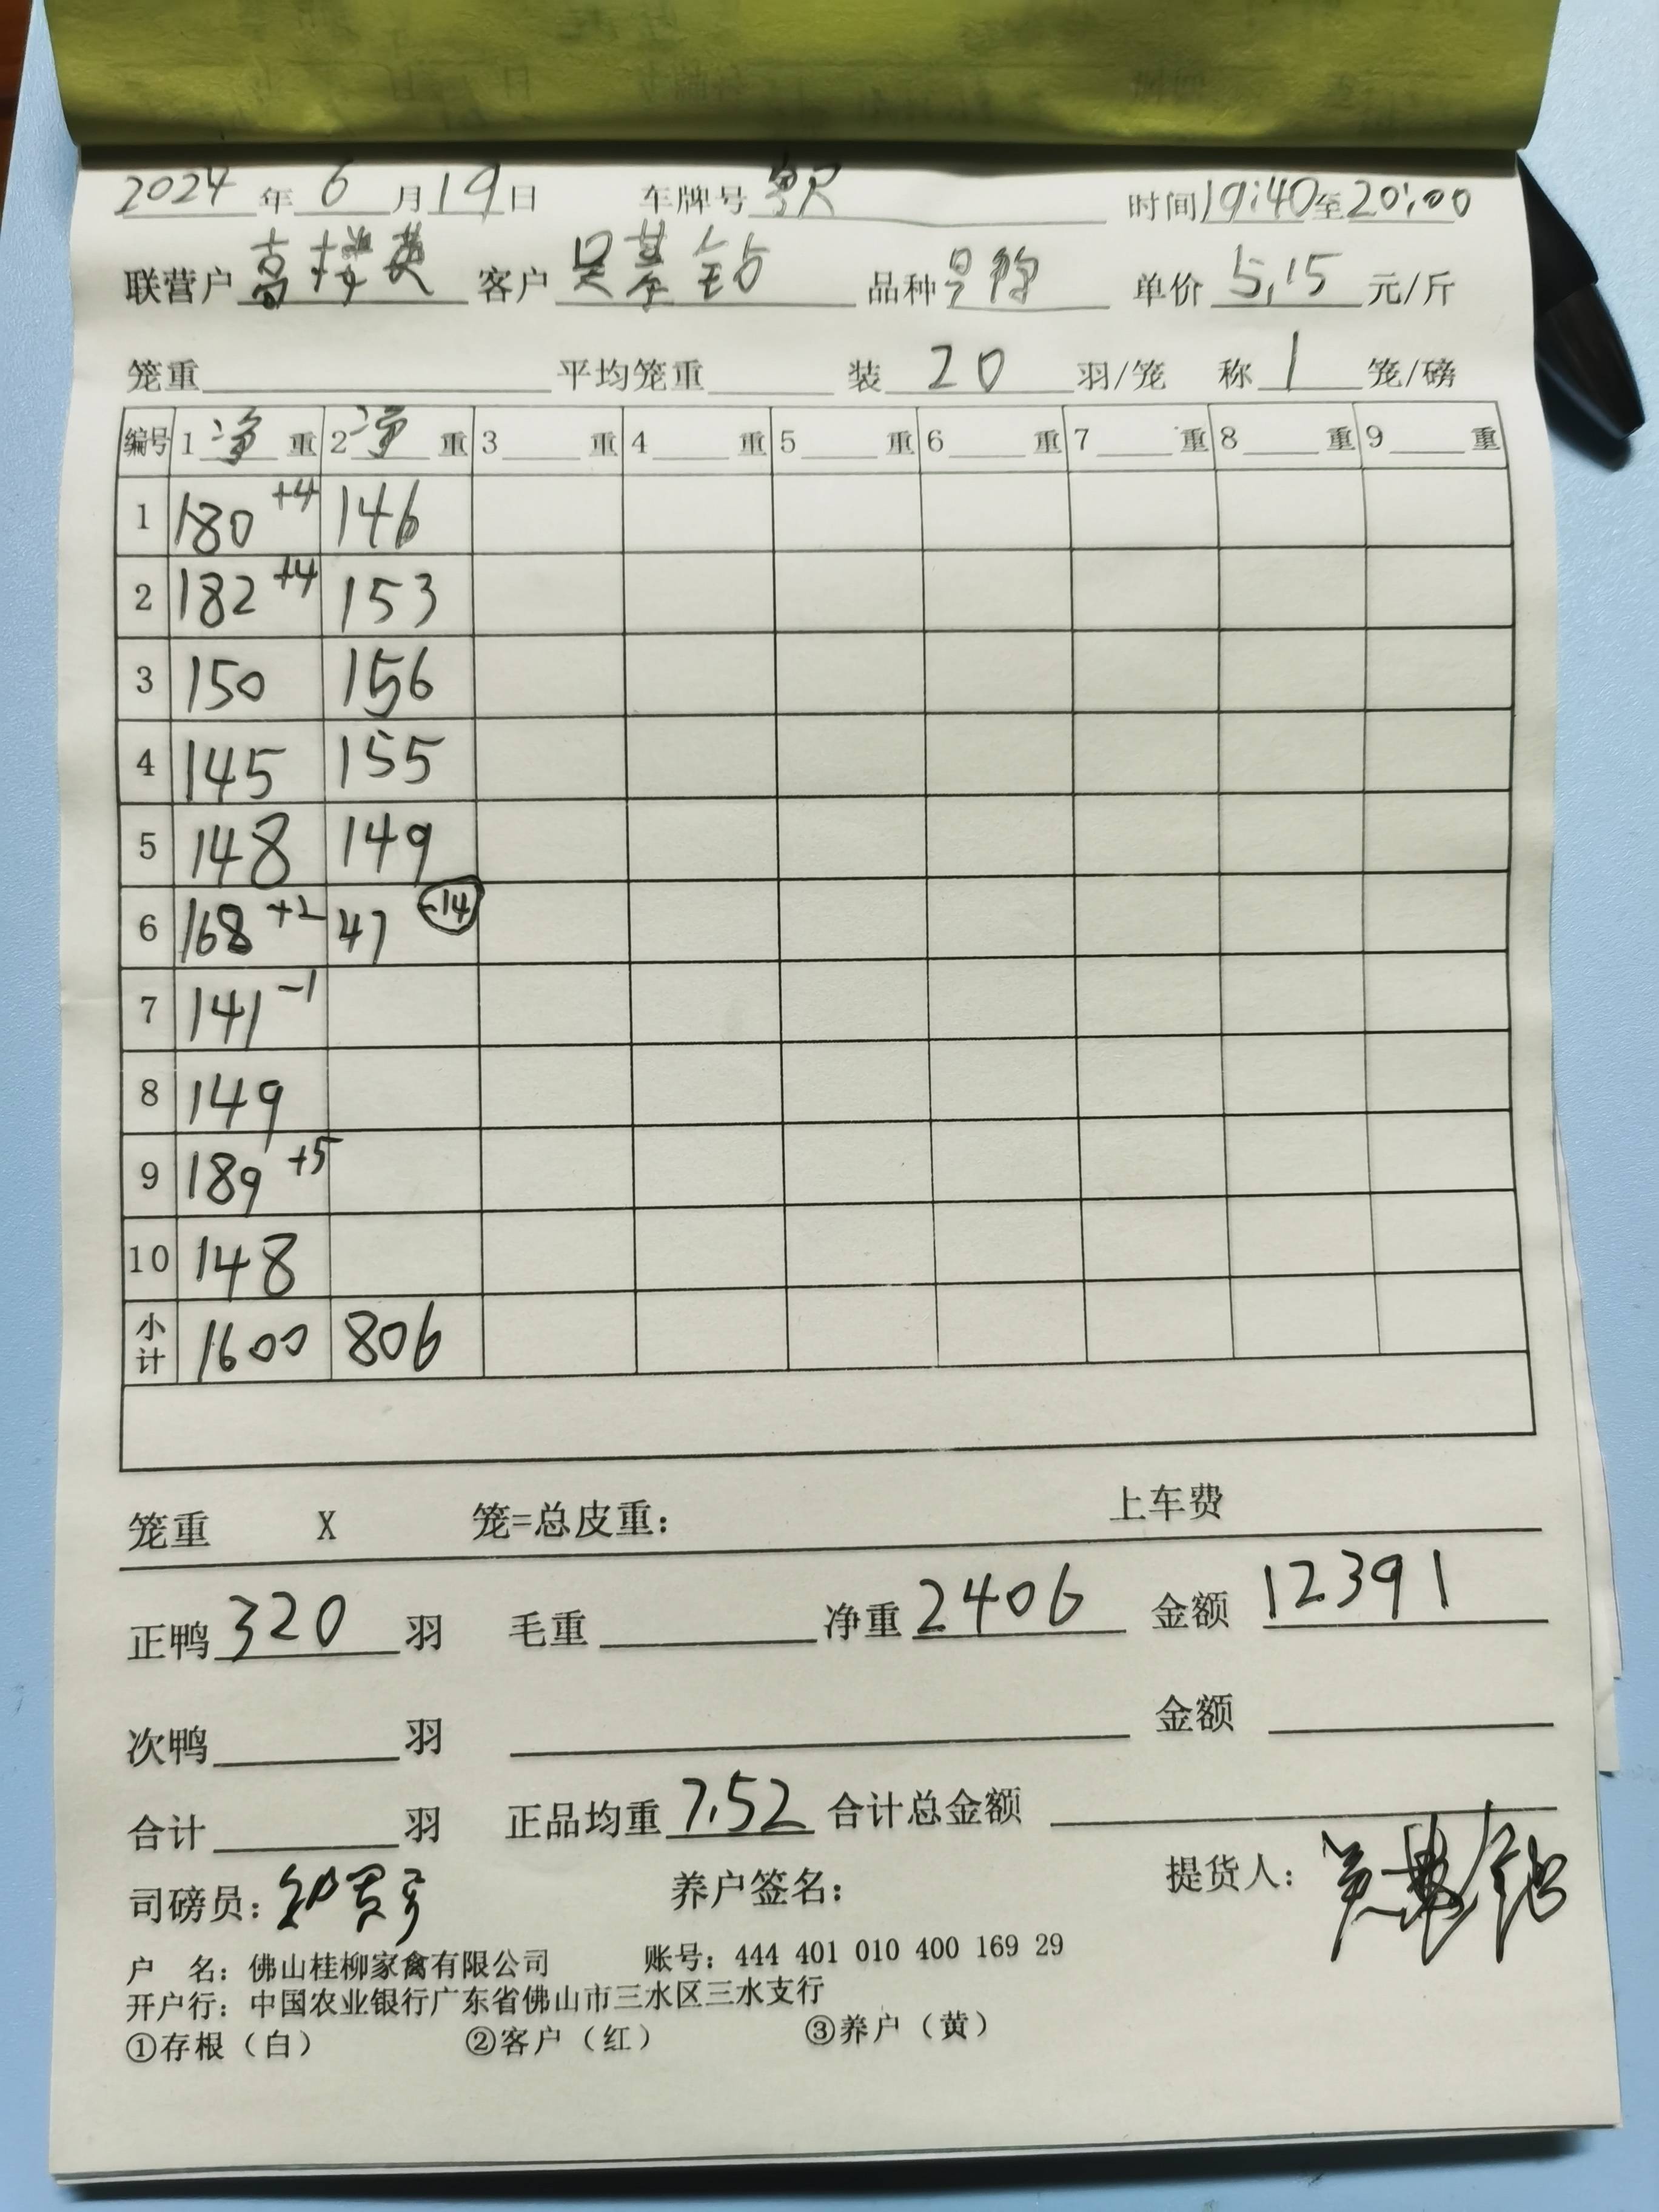 2024年6月19日 车牌号 时间19:40至20:00
联营户高楼英 客户吴基钻 品种 单价5.15元/斤
笼重 平均笼重 装20羽/笼 称1笼/磅
编号 1净重 2净重 3重 4重 5重 6重 7重 8重 9重
1 180+4 146
2 182+4 153
3 150 156
4 145 155
5 148 149
6 168+2 47 -14
7 141-1
8 149
9 189+5
10 148
小计 1600 806
笼重 X 笼=总皮重: 上车费
正鸭320羽 毛重 净重2406 金额12391
次鸭 羽 金额
合计 羽 正品均重7.52 合计总金额
司磅员: 养户签名: 提货人: 吴基钻
户 名: 佛山桂柳家禽有限公司 账号: 444 401 010 400 169 29
开户行: 中国农业银行广东省佛山市三水区三水支行
①存根(白) ②客户(红) ③养户(黄)